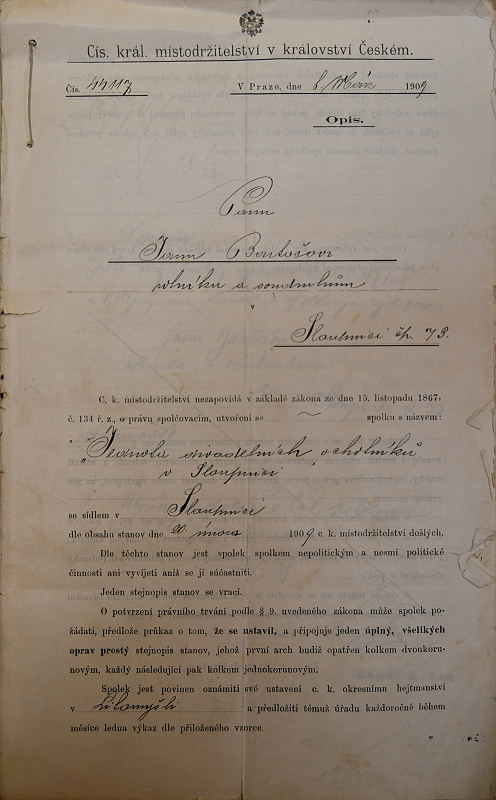 Cís. král. místodržitelství v království Českém.
Čís. 44117 V Praze, dne 6. Mář. 1909
Opis.
Panu
Janu Bartošovi
rolníku a soudruhům
v
Sloupnici čp. 73.
C. k. místodržitelství nezapovídá v základě zákona ze dne 15. listopadu 1867,
č. 134 ř. z., o právu spolčovacím, utvoření se ~ spolku s názvem:
„Jednota divadelních ochotníků
v Sloupnici"
se sídlem v Sloupnici
dle obsahu stanov dne 20. února 1909 c. k. místodržitelství došlých.
Dle těchto stanov jest spolek spolkem nepolitickým a nesmí politické
činnosti ani vyvíjeti aniž se jí súčastniti.
Jeden stejnopis stanov se vrací.
O potvrzení právního trvání podle § 9. uvedeného zákona může spolek po-
žádati, předlože průkaz o tom, že se ustavil, a připojuje jeden úplný, všelikých
oprav prostý stejnopis stanov, jehož první arch budiž opatřen kolkem dvoukoru-
novým, každý následující pak kolkem jednokorunovým.
Spolek jest povinen oznámiti své ustavení c. k. okresnímu hejtmanství
v Litomyšli a předložiti témuž úřadu každoročně během
měsíce ledna výkaz dle přiloženého vzorce.